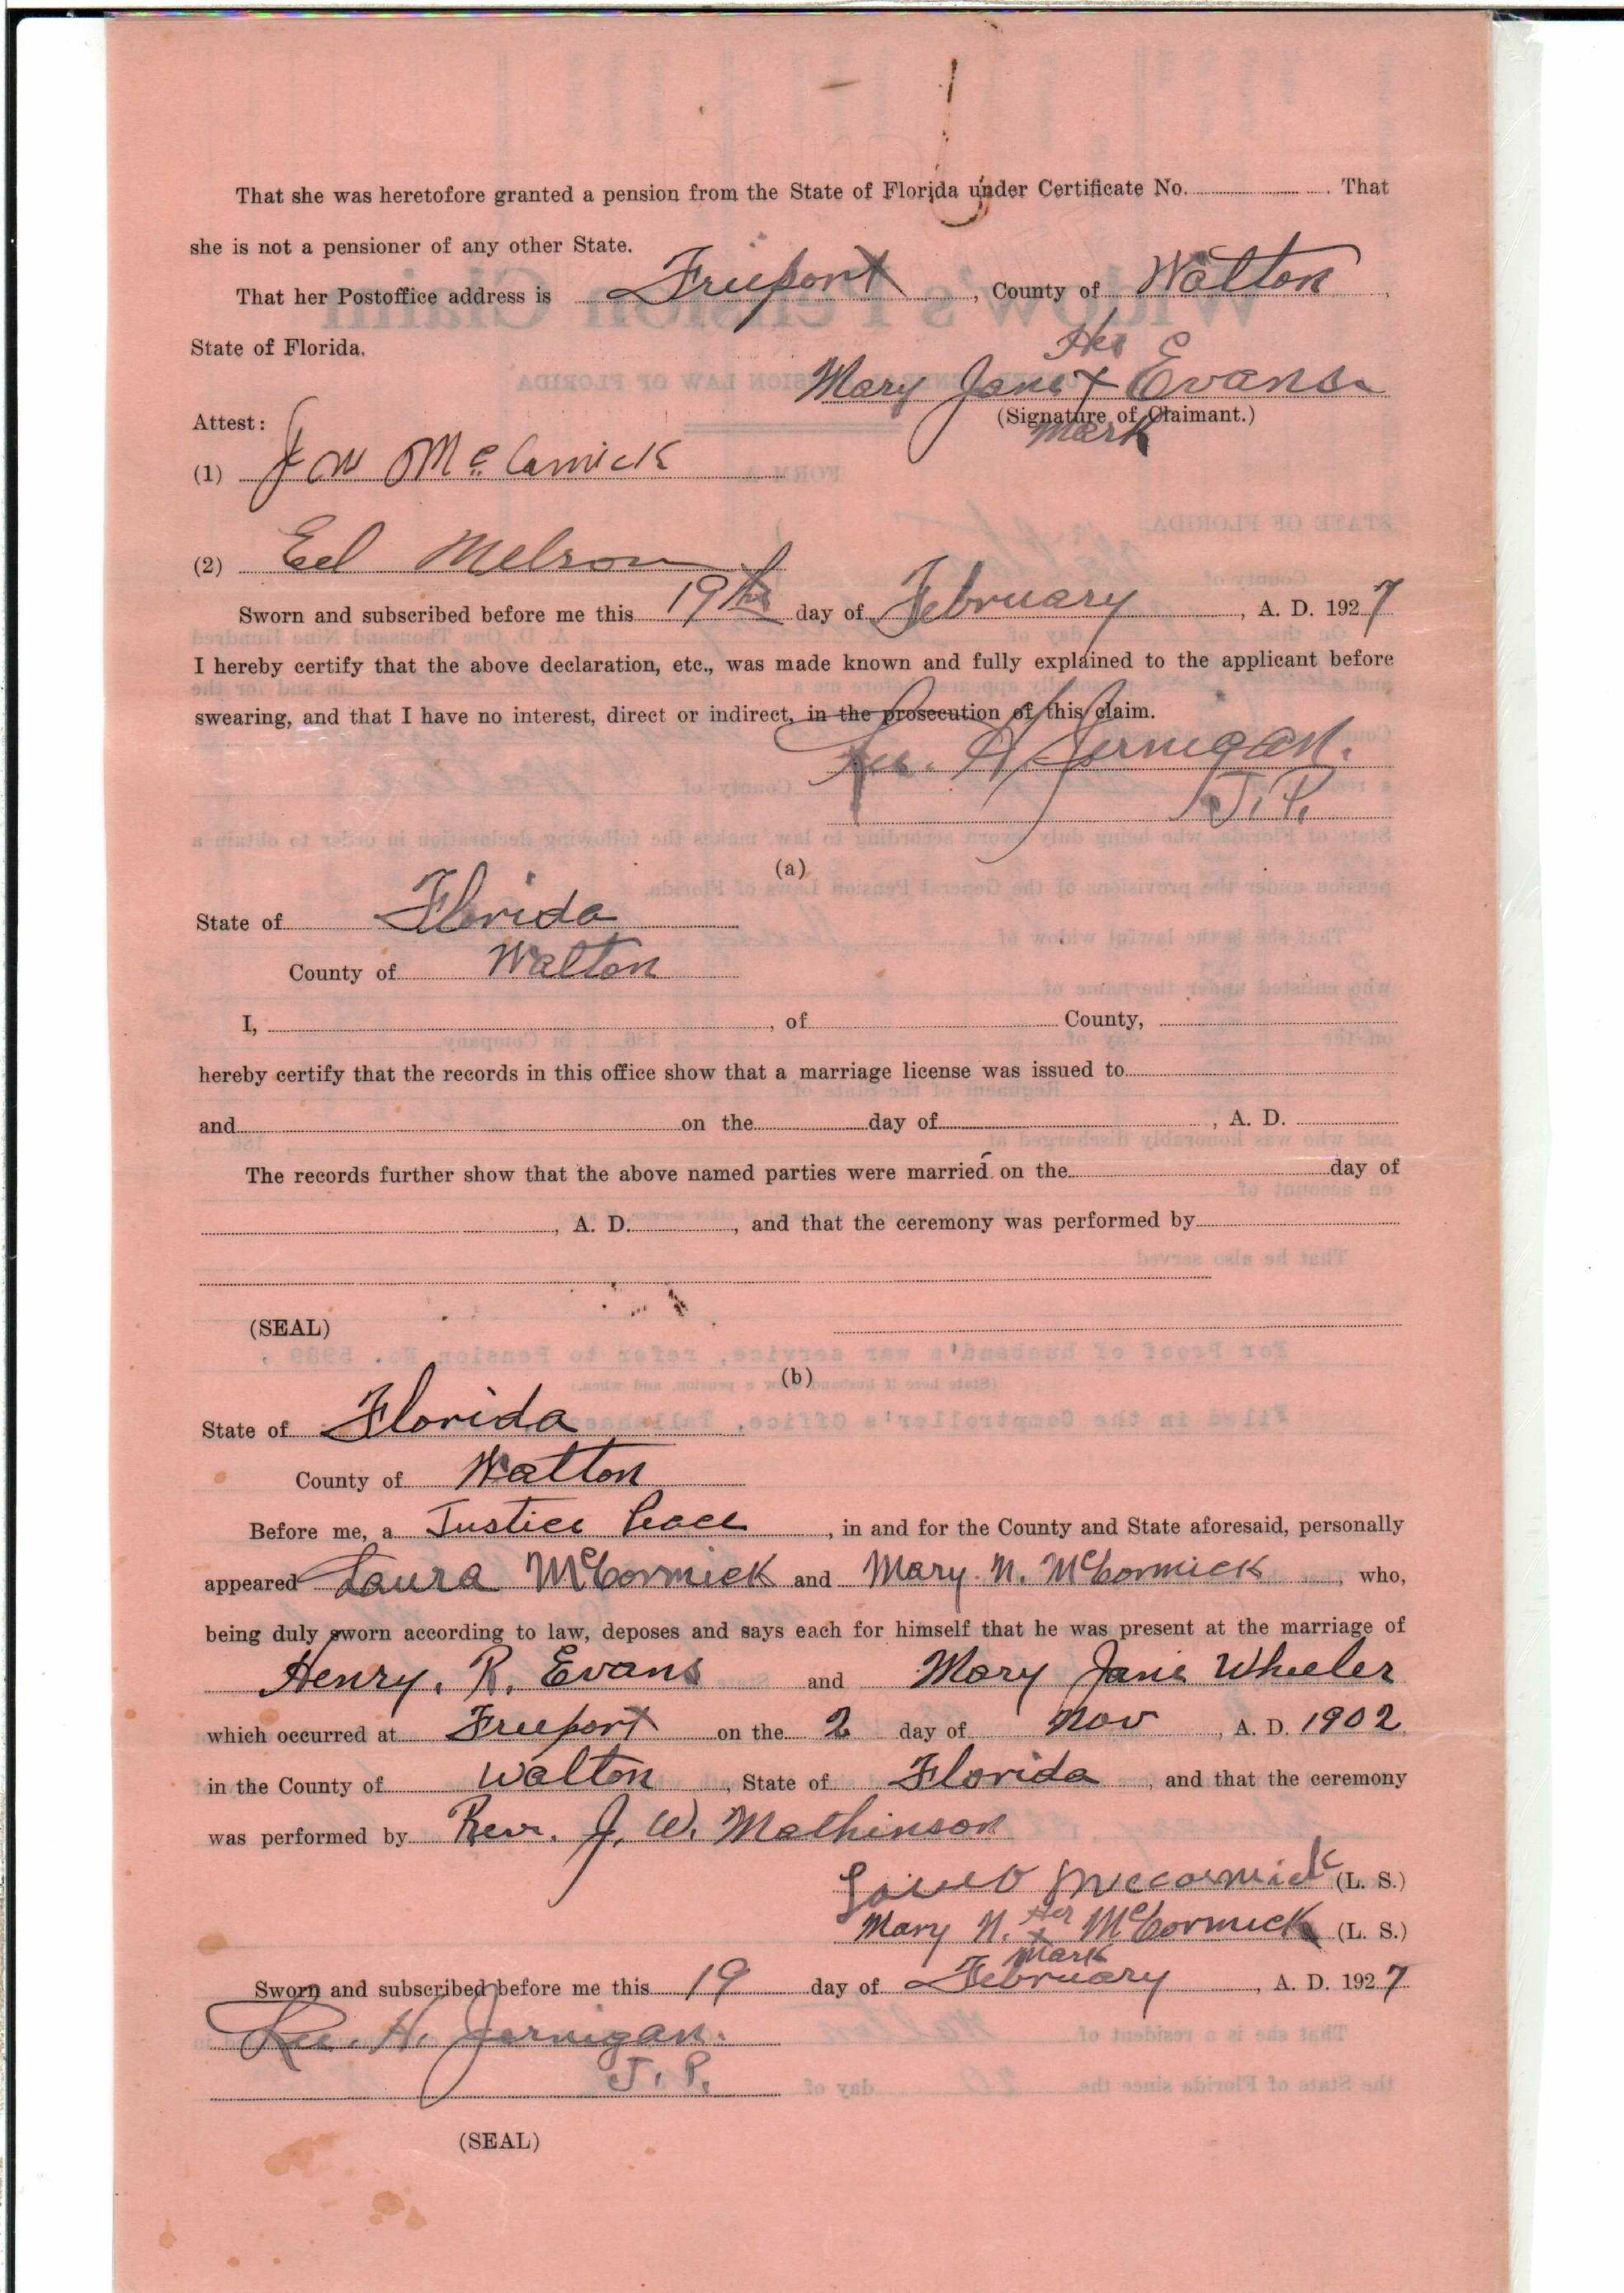 That she was heretofore granted a pension from the State of Florida under Certificate No. . That
she is not a pensioner of any other State.
That her Postoffice address is Freeport, County of Walton,
State of Florida.
Her
Mary Jane X Evans.
Attest: (Signature of Claimant.)
Mark
(1) J W McCormick
(2) Ed Melson
Sworn and subscribed before me this 19th day of February, A. D. 1927
I hereby certify that the above declaration, etc., was made known and fully explained to the applicant before
swearing, and that I have no interest, direct or indirect, in the prosecution of this claim.
Lee. H. Jernigan.
J. P.
(a)
State of Florida
County of Walton
I, , of County,
hereby certify that the records in this office show that a marriage license was issued to
and on the day of , A. D.
The records further show that the above named parties were married on the day of
, A. D. , and that the ceremony was performed by
(SEAL)
(b)
State of Florida
County of Walton
Before me, a Justice Peace, in and for the County and State aforesaid, personally
appeared Laura McCormick and Mary. N. McCormick, who,
being duly sworn according to law, deposes and says each for himself that he was present at the marriage of
Henry. R. Evans and Mary Jane Wheeler
which occurred at Freeport on the 2 day of Nov, A. D. 1902
in the County of Walton, State of Florida, and that the ceremony
was performed by Rev. J. W. Mathinson
McCormick (L. S.)
Her
Mary N. X McCormick (L. S.)
Mark
Sworn and subscribed before me this 19 day of February, A. D. 1927
Lee. H. Jernigan.
J. P.
(SEAL)